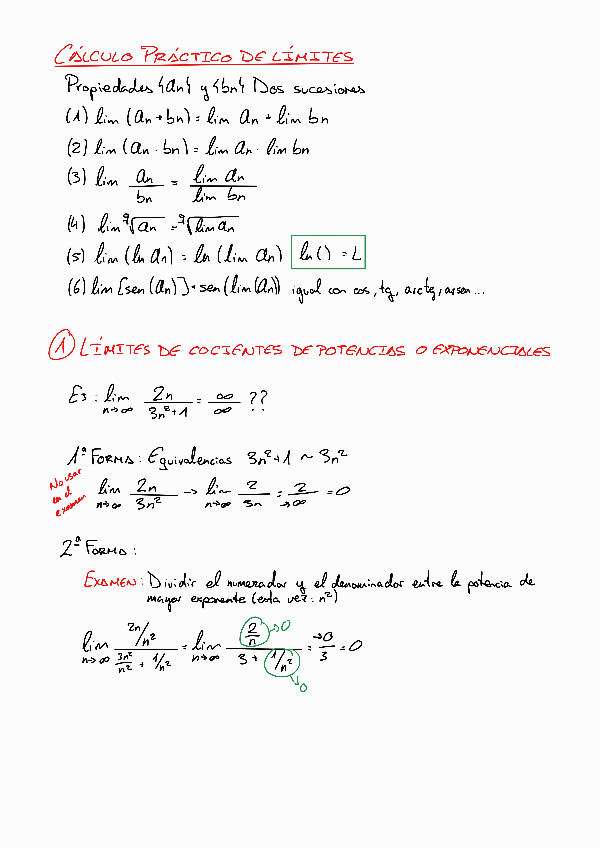 CÁLCULO PRÁCTICO DE LÍMITES
Propiedades {an} y {bn} Dos sucesiones
(1) lim (an + bn) = lim an + lim bn
(2) lim (an · bn) = lim an · lim bn
(3) lim an/bn = lim an / lim bn
(4) lim ᵠ√an = ᵠ√lim an
(5) lim (ln an) = ln (lim an) ln() = L
(6) lim [sen (an)] = sen (lim (an)) igual con cos, tg, arctg, arsen...
① LÍMITES DE COCIENTES DE POTENCIAS O EXPONENCIALES
Ej: lim n→∞ 2n / 3n²+1 = ∞/∞ ??
1ª FORMA: Equivalencias 3n²+1 ~ 3n²
No usar
en el
examen
lim n→∞ 2n / 3n² → lim n→∞ 2 / 3n = 2 / →∞ = 0
2ª FORMA:
EXAMEN: Dividir el numerador y el denominador entre la potencia de
mayor exponente (esta vez: n²)
lim n→∞ (2n/n²) / (3n²/n² + 1/n²) = lim n→∞ (2/n →0) / (3 + 1/n² →0) = →0 / 3 = 0